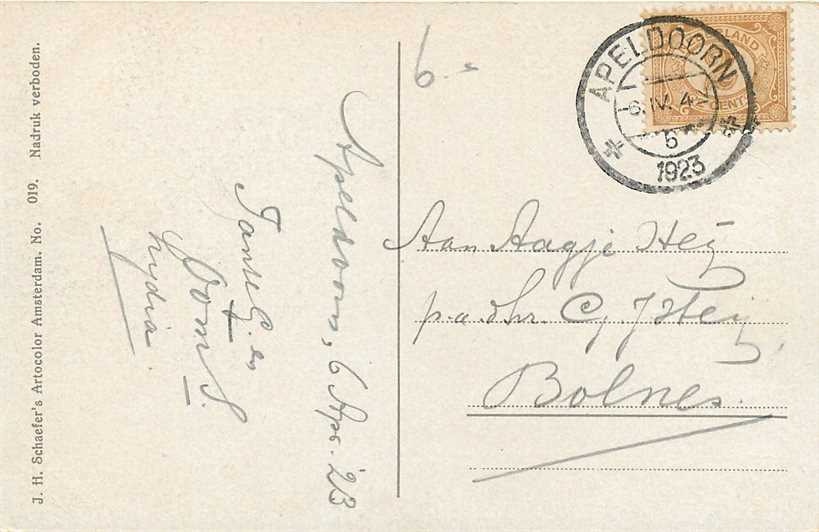 J. H. Schaefer's Artocolor Amsterdam. No. 019. Nadruk verboden.
Apeldoorn, 6 Apr. '23
Tante G. en
Oom S.
Lydia.
6.-
APELDOORN
6.IV. 4-
6
1923
LAND
CENT
Aan Aagje Heij
p.a. dhr. C. J. Heij
Bolnes.